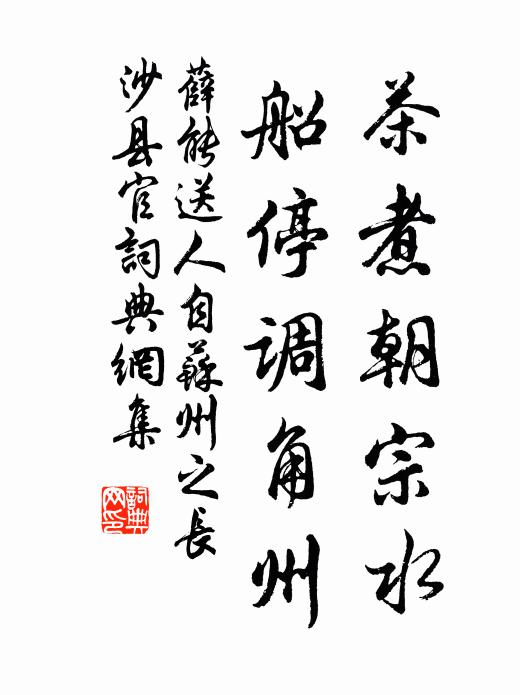 茶煮朝宗水
船停调角州
薛能送人自蘇州之長
沙县官詞典網集
詞典
网印